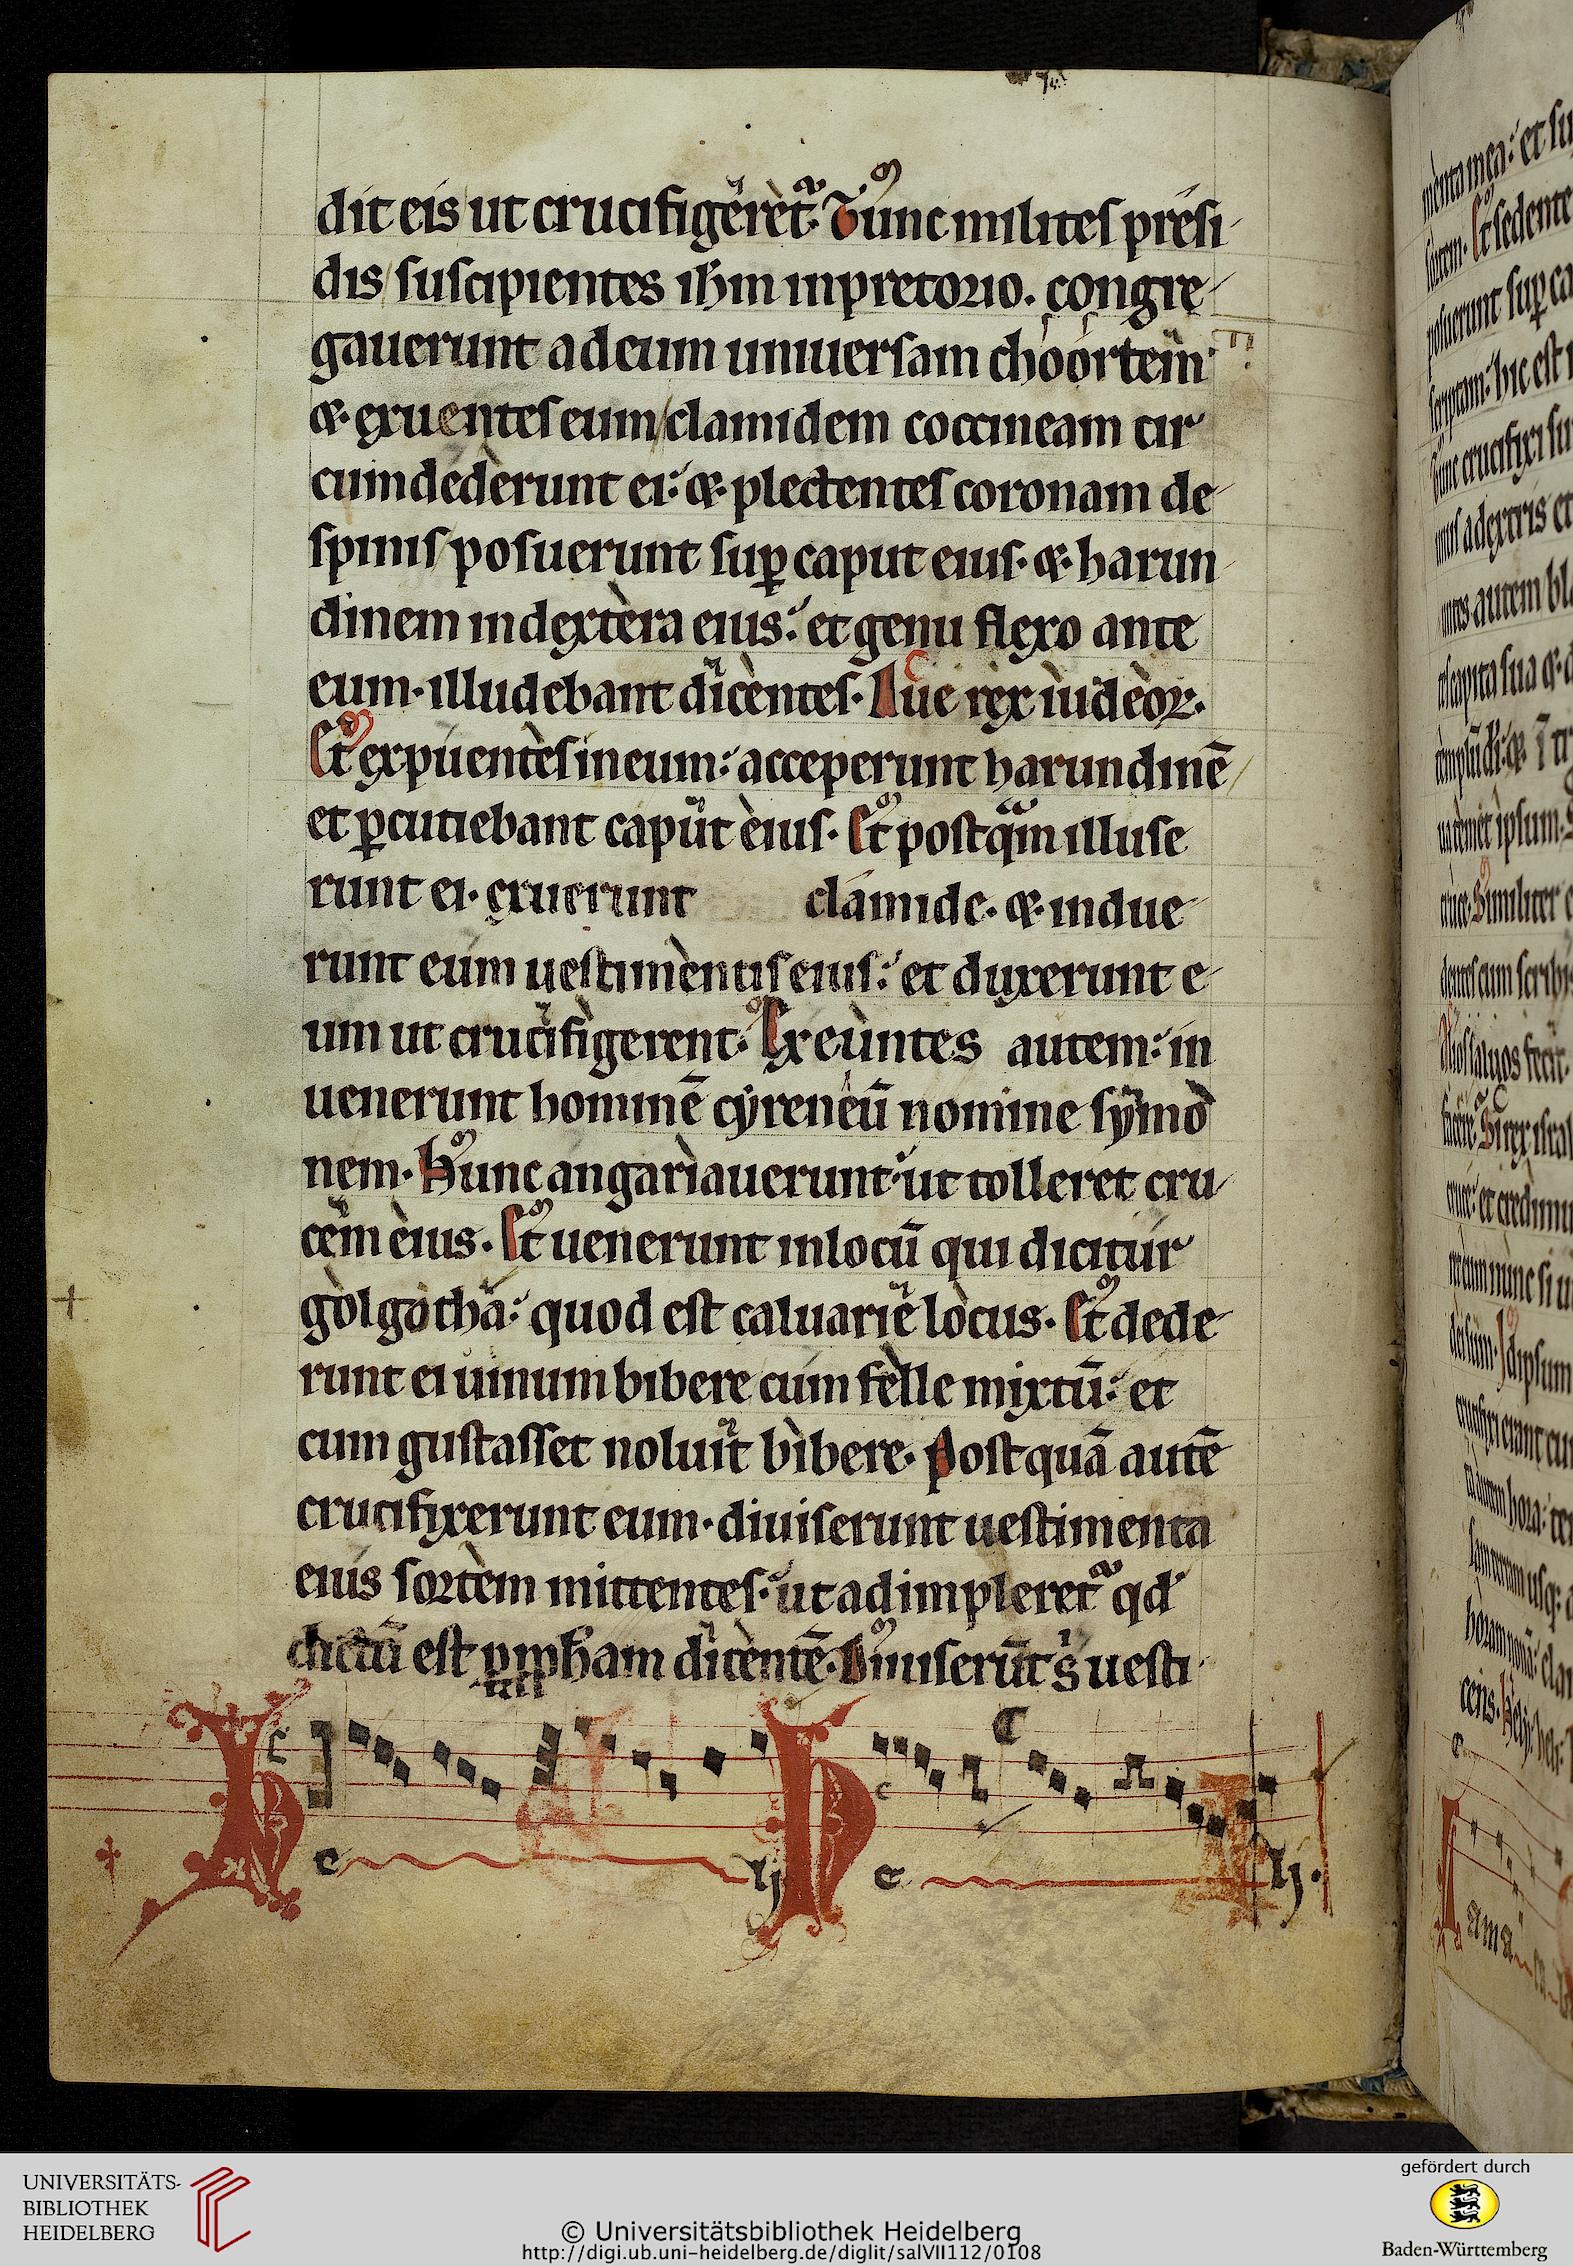 dit eis ut crucifigeret᷑. Tunc milites presi
dis suscipientes ih̅m inpretorio. congre
gauerunt adeum uniuersam choortem
⁊ exuentes eum clamidem coccineam cir
cumdederunt ei: ⁊ plectentes coronam de
spinis posuerunt suꝑ caput eius. ⁊ harun
dinem indextera eius: et genu flexo ante
eum. illudebant dicentes. Aue rex iudeoꝝ.
Et expuentes in eum: acceperunt harundinē
et ꝑcutiebant caput eius. Et postqᷓm illuse
runt ei. exuerunt clamide. ⁊ indue
runt eum uestimentis eius: et duxerunt e
um ut crucifigerent. Exeuntes autem: in
uenerunt hominē cyreneū nomine symo
nem. Hunc angariauerunt ut tolleret cru
cem eius. Et uenerunt inlocū qui dicitur
golgotha: quod est caluarie locus. Et dede
runt ei uinum bibere cum felle mixtū: et
cum gustasset noluit bibere. Postquā autē
crucifixerunt eum. diuiserunt uestimenta
eius sortem mittentes: ut adimpleret᷑ qd
dictū est ꝓph̅am dicentē. Diuiserūt s̉ uesti
H e ly H e ly.
menta mea: et su
sortem. Et sedente
posuerunt suꝑ ca
scriptam: hic est
Tunc crucifixi su
unus adextris et
autem bl
capita sua ⁊
ipsum.
Similiter
cum scribi
saluos fecit.
Si rex isra
et credimu
nunc si u
hora: te
UNIVERSITÄTS-
BIBLIOTHEK
HEIDELBERG
© Universitätsbibliothek Heidelberg
http://digi.ub.uni-heidelberg.de/diglit/salVII112/0108
gefördert durch
Baden-Württemberg